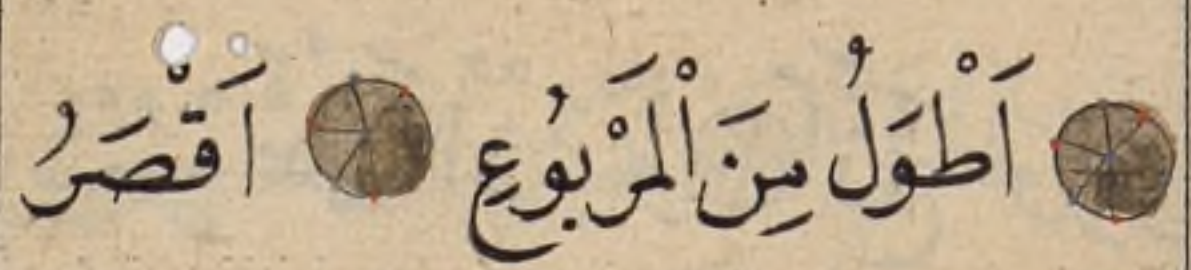 اَطْوَلُ مِنَ الْمَرْبُوعِ اَقْصَرُ